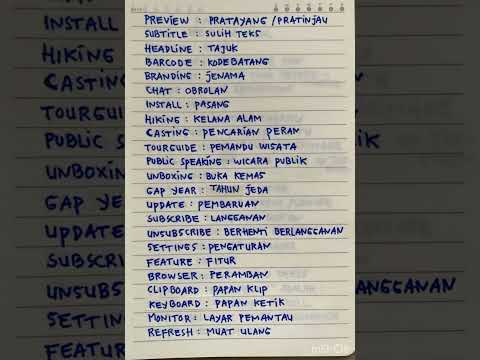 PREVIEW : PRATAYANG / PRATINJAU
SUBTITLE : SULIH TEKS
HEADLINE : TAJUK
BARCODE : KODEBATANG
BRANDING : JENAMA
CHAT : OBROLAN
INSTALL : PASANG
HIKING : KELANA ALAM
CASTING : PENCARIAN PERAN
TOURGUIDE : PEMANDU WISATA
PUBLIC SPEAKING : WICARA PUBLIK
UNBOXING : BUKA KEMAS
GAP YEAR : TAHUN JEDA
UPDATE : PEMBARUAN
SUBSCRIBE : LANGGANAN
UNSUBSCRIBE : BERHENTI BERLANGGANAN
SETTINGS : PENGATURAN
FEATURE : FITUR
BROWSER : PERAMBAN
CLIPBOARD : PAPAN KLIP
KEYBOARD : PAPAN KETIK
MONITOR : LAYAR PEMANTAU
REFRESH : MUAT ULANG